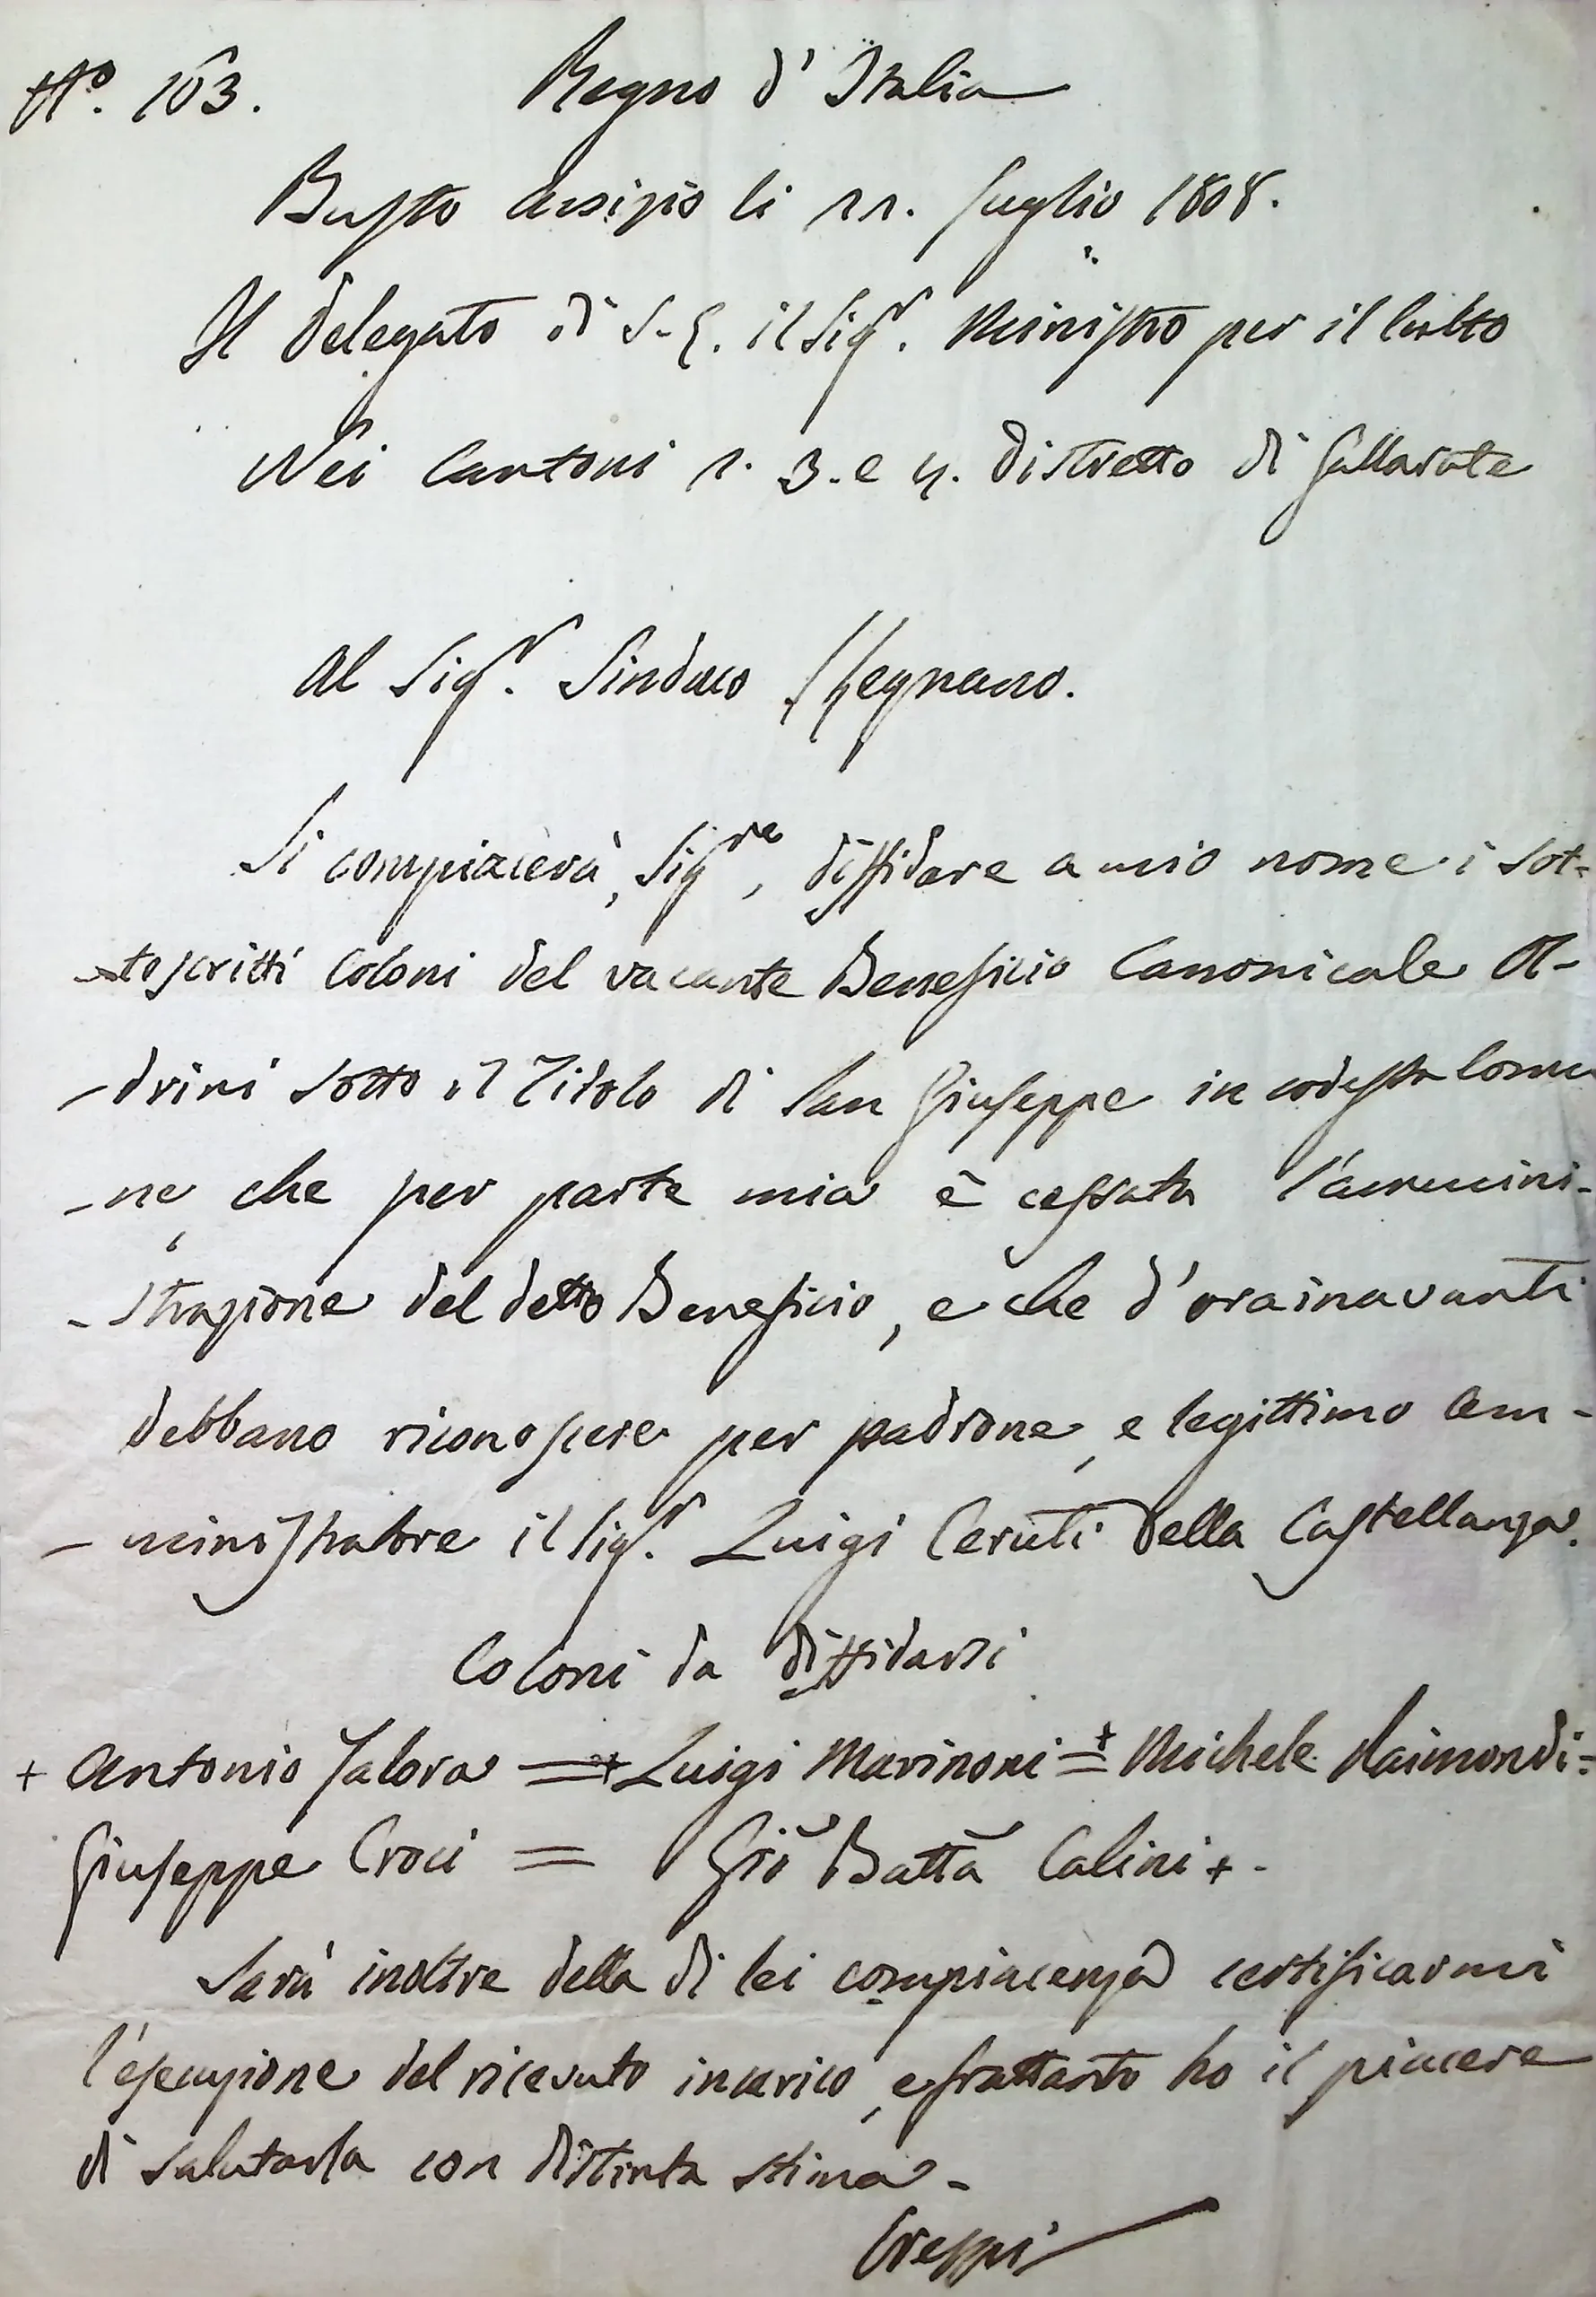 N.° 163. Regno d'Italia
Busto Arsizio li 11. Luglio 1808.
Il Delegato di S. E. il Sig.r Ministro per il Culto
Nei Cantoni 1. 3. e 4. Distretto di Gallarate
Al Sig.r Sindaco // Legnano.
Si compiacerà, Sig.re, diffidare a mio nome i sot-
-toscritti Coloni del vacante Beneficio Canonicale Al-
-drini sotto il Titolo di San Giuseppe in codesta Comu
-ne, che per parte mia è cessata l'ammini-
-strazione del detto Beneficio, e che d'orainavanti
debbano riconoscere per padrone, e legittimo Am-
-ministratore il Sig.r Luigi Ceruti della Castellanza.
Coloni da diffidarsi
+ Antonio Salora =+ Luigi Marinoni =+ Michele Raimondi =
Giuseppe Croci = Gio Batta Calini + -
Sarà inoltre della di lei compiacenza certificarmi
l'esecuzione del ricevuto incarico, e frattanto ho il piacere
di salutarla con distinta stima -
Crespi